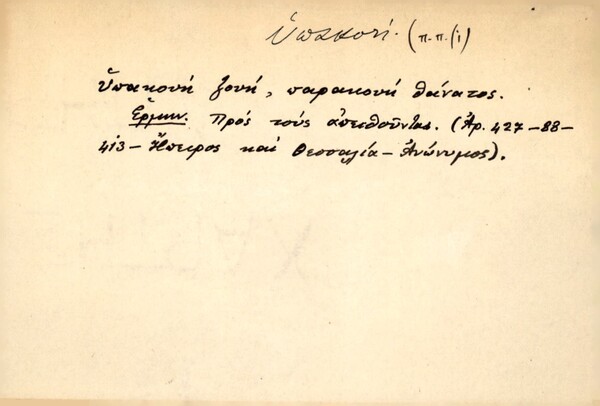 ὑπακοή. (π.π./i)
Ὑπακονή ζονή, παρακονή θάνατος.
Ἑρμην. Πρός τούς ἀπειθοῦντας. (Ἀρ. 427-88-
413- Ἤπειρος καί Θεσσαλία - Ἀνώνυμος).